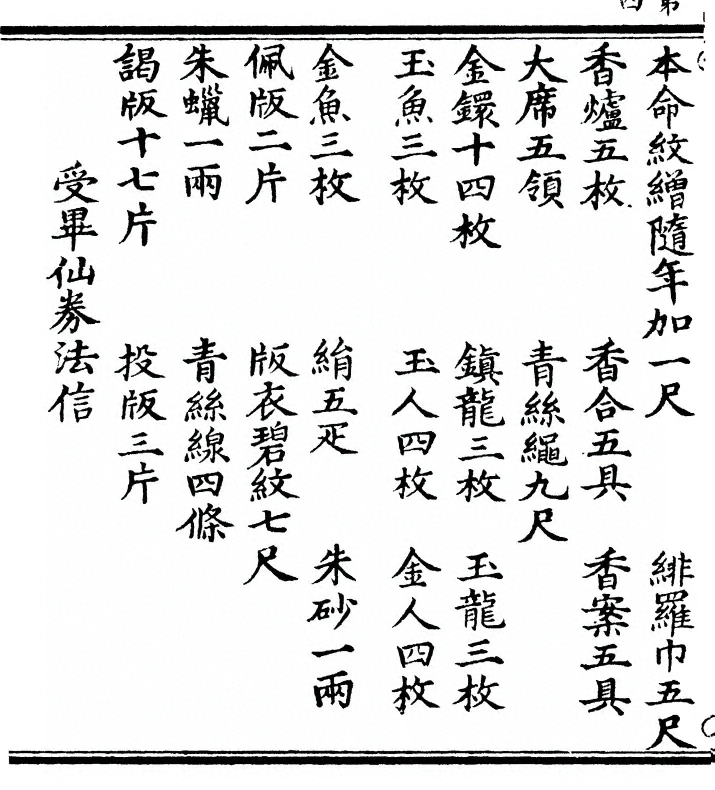 本命紋繒隨年加一尺　緋羅巾五尺
香爐五枚　香合五具　香案五具
大席五領　青絲繩九尺
金鐶十四枚　鎮龍三枚　玉龍三枚
玉魚三枚　玉人四枚　金人四枚
金魚三枚　絹五疋　朱砂一兩
佩版二片　版衣碧紋七尺
朱蠟一兩　青絲線四條
謁版十七片　投版三片
受畢仙券法信